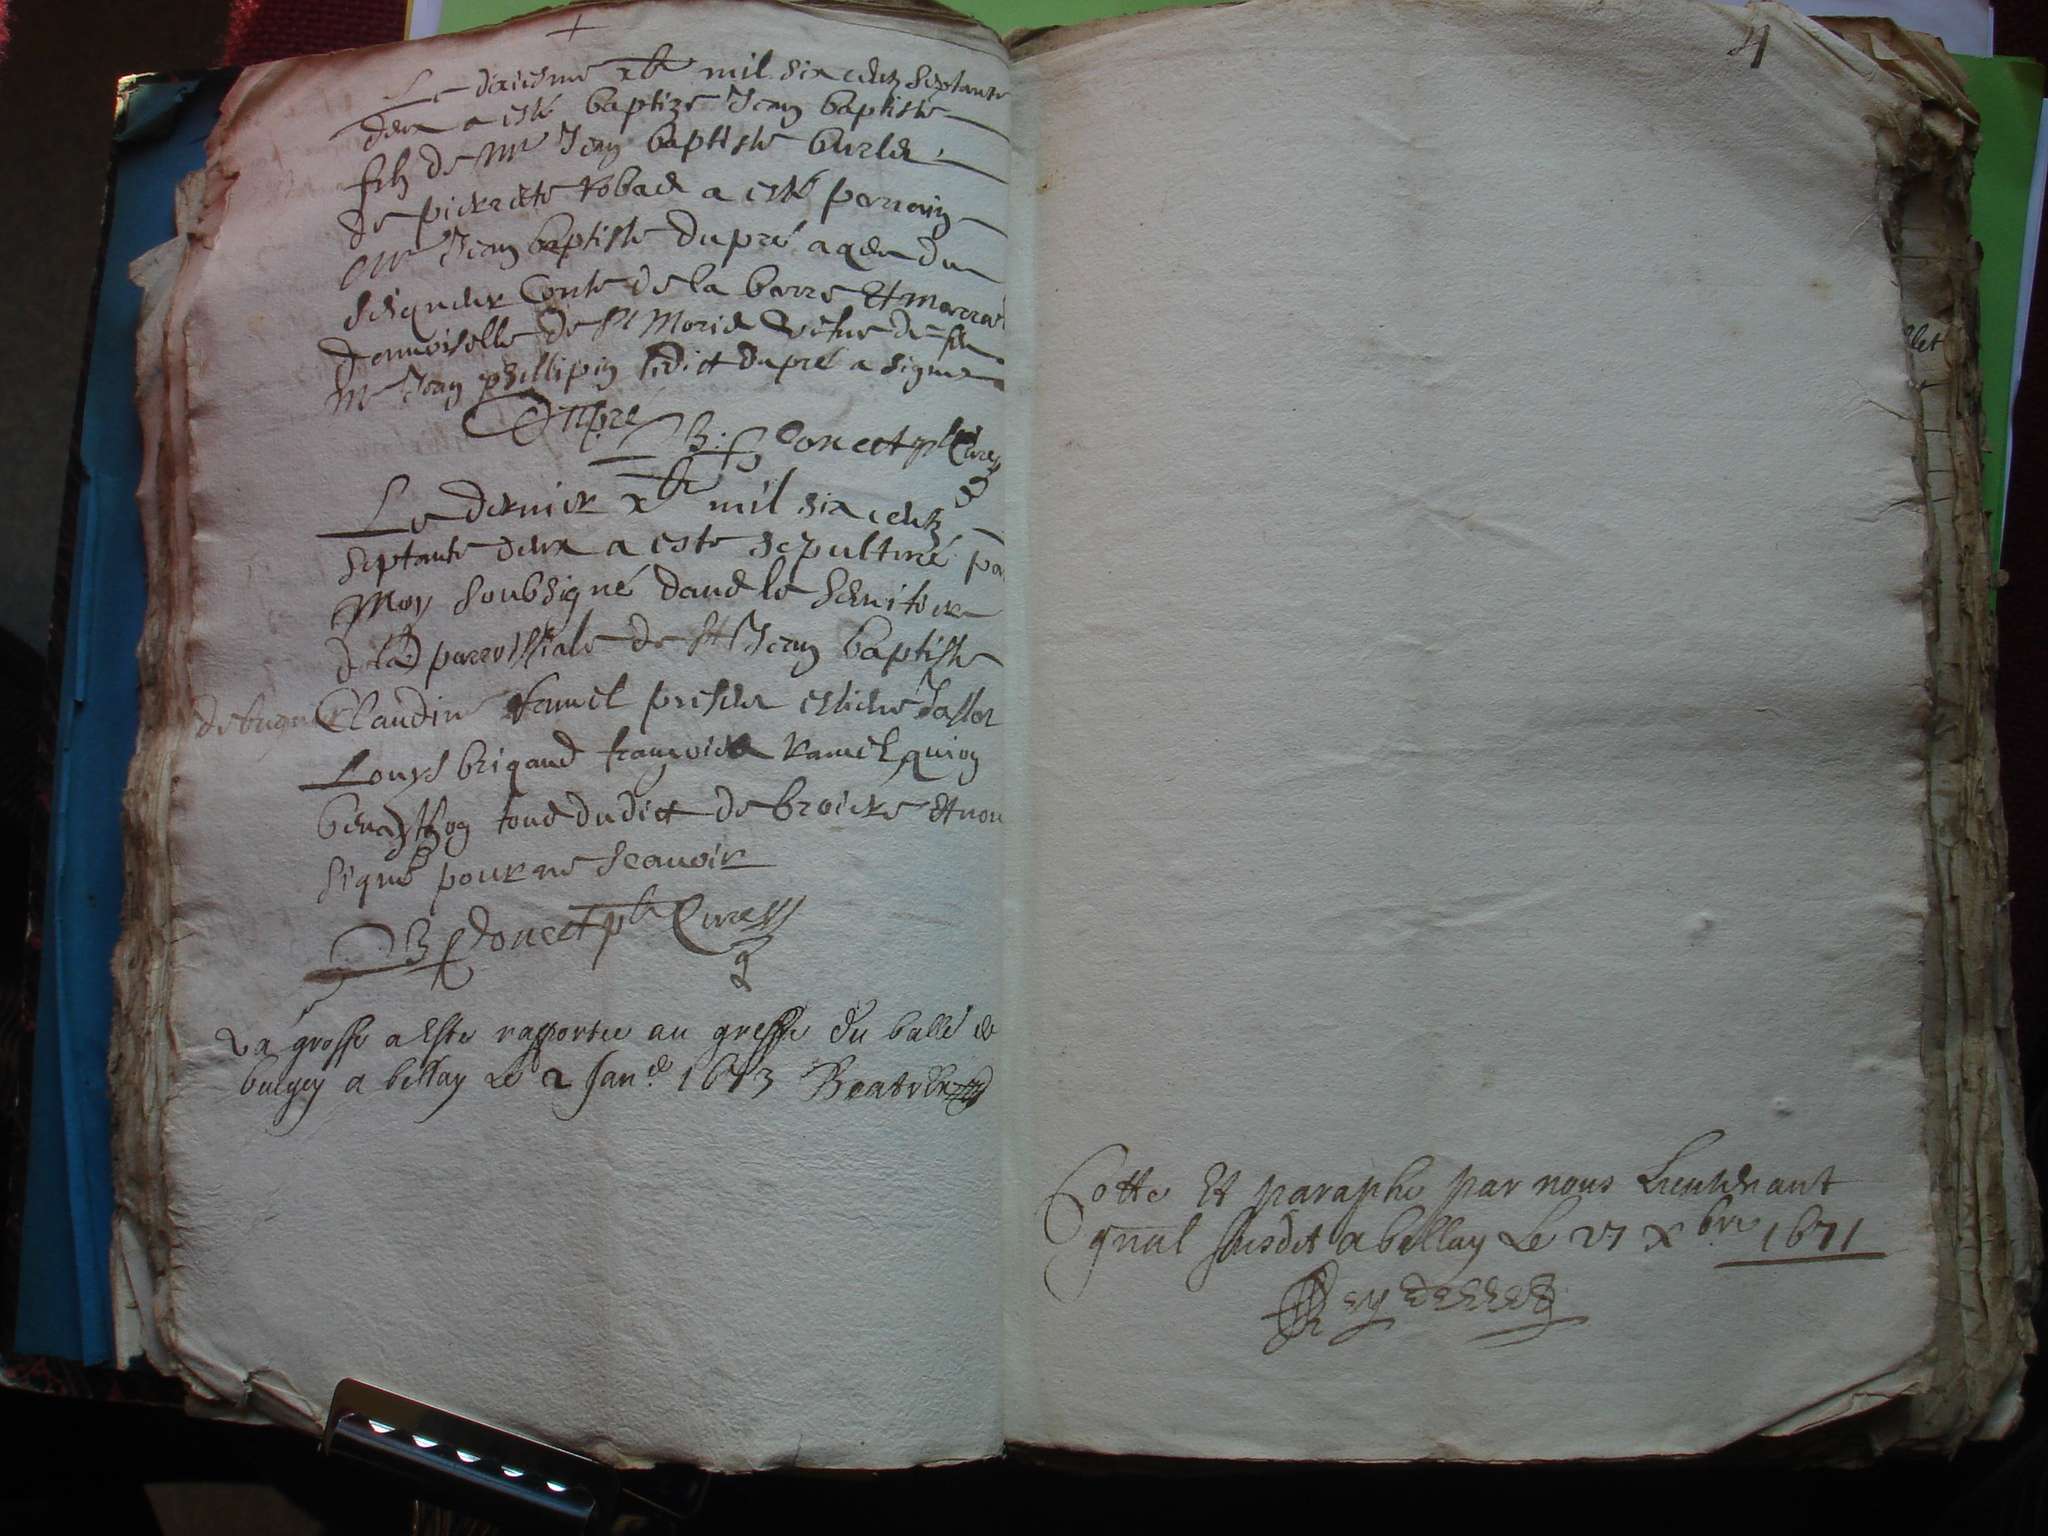 Le dixiesme xbre mil six centz septante
deux a esté baptize Jean baptiste
filz de Mre Jean baptiste burlet
de pierrette robad a esté parrain
Mre Jean baptiste dupré agen du
seigneur Conte de la barre Et marra
damoiselle de St Moris vefve de feu
Mre Jean phillipin ledict dupré a signe
Dupré B: Conect pbr Cure
Le dernier xbre mil six centz
septante deux a este sepulturé pa
Moy soubsigné dans le semitiere
de lad parrossiale de St Jean baptiste
debugn Claudine ramel presens estiene Jasson
Louys brigand françois ramel guion
tous dudict de Et non
signé pour ne scavoir
B Conect pbr Cure
La grosse a Este rapportee au greffe du balle de
bugey a bellay Le 2 Jane 1673
4
llet
Cotte Et paraphe par nous Lieutenant
gnal susdit a bellay Le 27 Xbre 1671